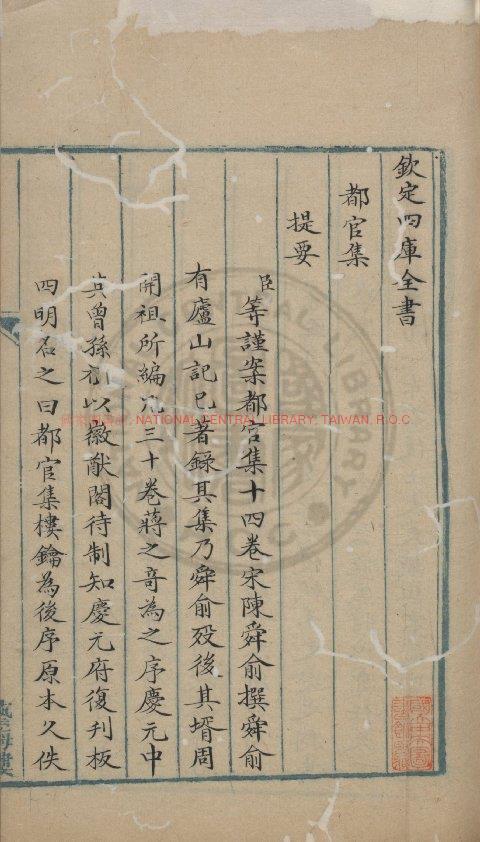 欽定四庫全書
都官集
提要
臣等謹案都官集十四卷宋陳舜俞撰舜俞
有廬山記已著錄其集乃舜俞歿後其壻周
開祖所編凡三十卷蔣之奇為之序慶元中
其曾孫杞以徽猷閣待制知慶元府復刋板
四明名之曰都官集樓鑰為後序原本久佚
NATIONAL CENTRAL LIBRARY, TAIWAN, R.O.C